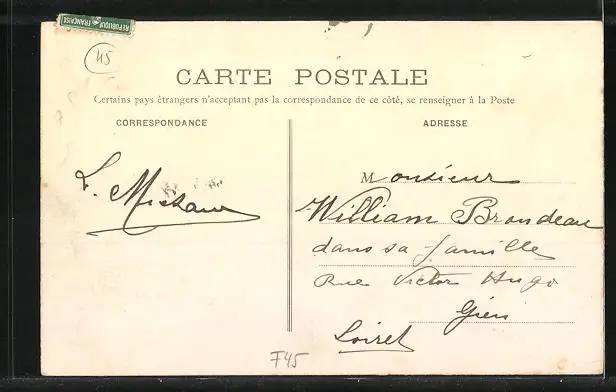 REPUBLIQUE FRANÇAISE
45
CARTE POSTALE
Certains pays étrangers n'acceptant pas la correspondance de ce côté, se renseigner à la Poste
CORRESPONDANCE
L. Michau
ADRESSE
Monsieur
William Brondeau
dans sa famille
Rue Victor Hugo
Gien
Loiret
F45